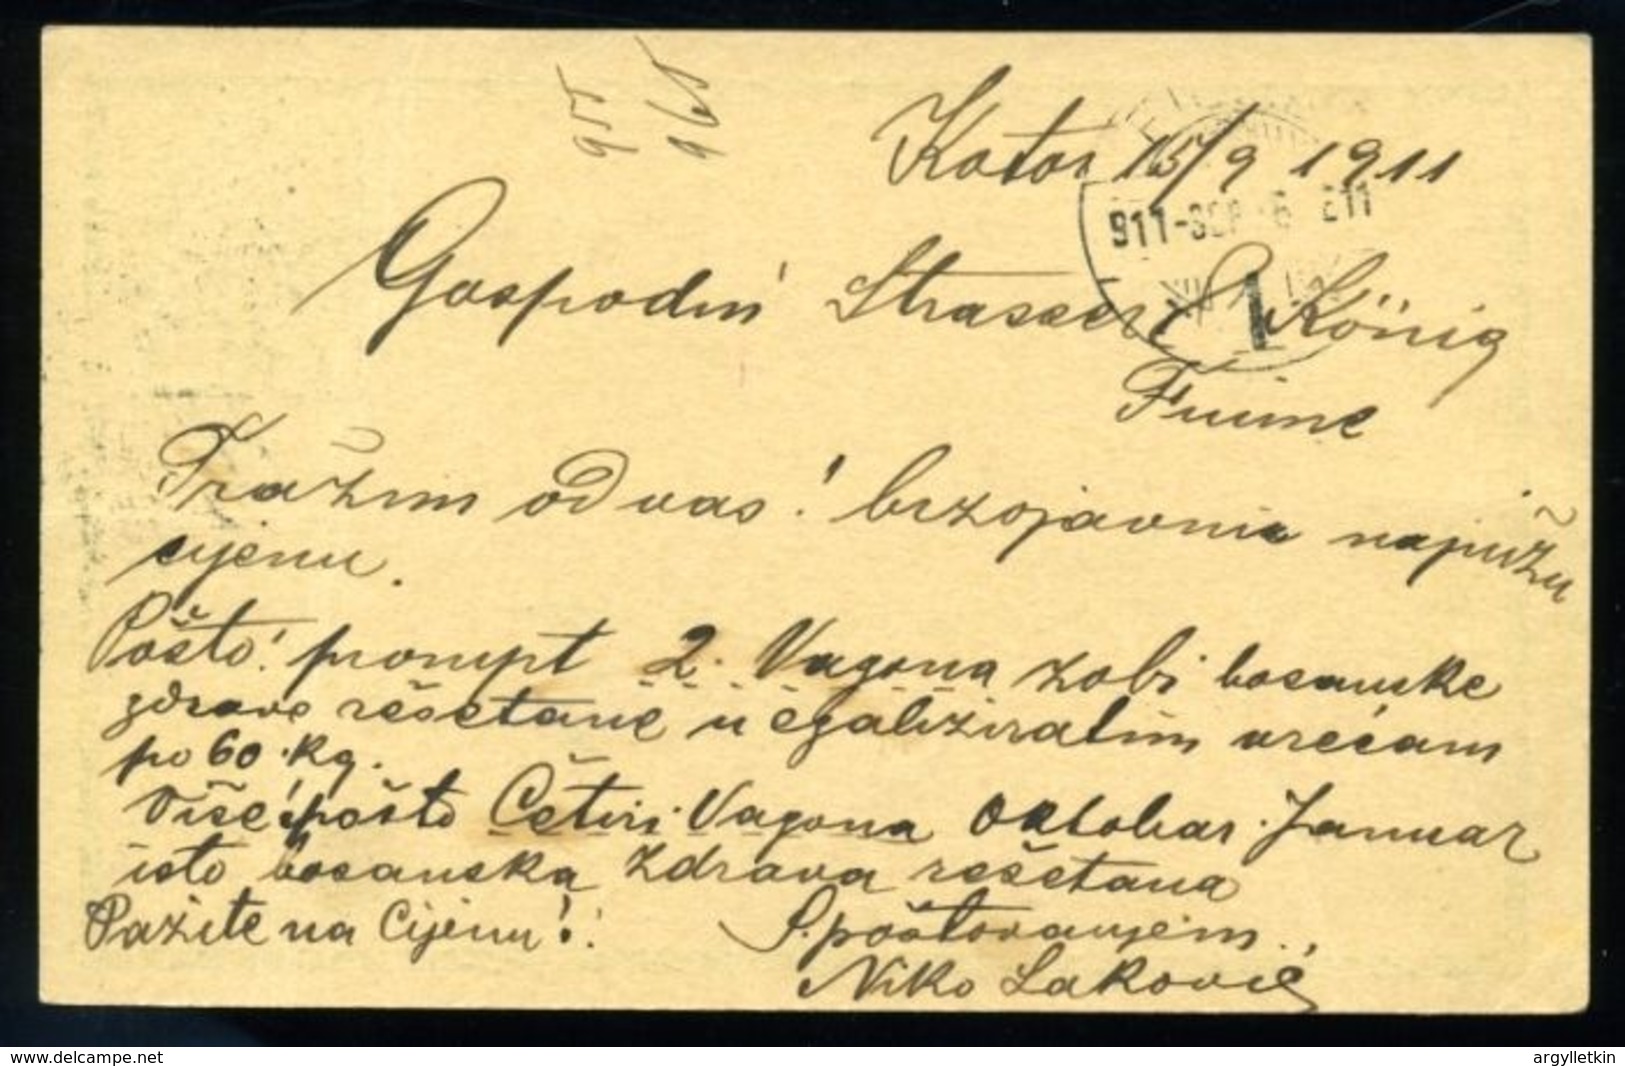 955
965
Kotor 15/9 1911
911-SEP-6
Gospodin Strasser i König
Fiume
Tražim od vas! brzojavnu najnižu
cijenu.
Pošto! prompt 2. Vagona zobi bosanske
zdrave rešetane u egaliziratim vrećam
po 60.Kg.
Više! pošto Četiri Vagona Oktobar. Januar
isto bosanska zdrava rešetana
Pažite na Cijenu!
S.poštovanjem.,
Niko Laković
www.delcampe.net
argylletkin